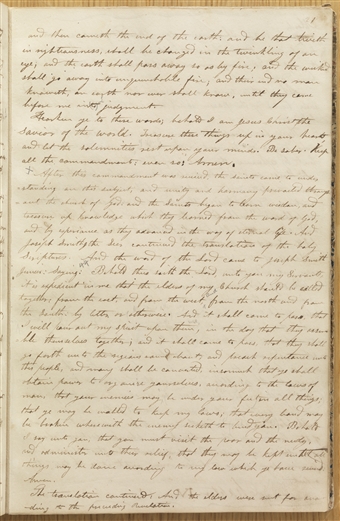 and then cometh the end of the earth; and he that liveth
in righteousness, shall be changed in the twinkling of an
eye; and the earth shall pass away so as by fire; and the wicked
shall go away into unquenchable fire; and their end no man
knoweth, on earth nor ever shall know, until they come
before me in judgment.
Hearken ye to these words; behold I am Jesus Christ the
savior of the world. Treasure these things up in your hearts
and let the solemnities rest upon your minds. Be sober. Keep
all the commandments; even so; Amen.
After this commandment was received the saints came to under-
standing on this subject, and unity and harmony prevailed through
out the church of God: and the Saints began to learn wisdom, and
treasure up knowledge which they learned from the word of God,
and by experience as they advanced in the way of eternal life. And
Joseph Smith Jr. continued the translation of the holy
Scriptures. And the word of the Lord came to Joseph Smith
Junior, saying; Behold thus saith the Lord, unto you my servant,
it is expedient in me that the elders of my Church should be called
together, from the east, and from the west, from the north and from
the south, by letter or otherwise. And it shall come to pass, that
I will pour out my spirit upon them, in the day that they assem-
ble themselves together; and it shall come to pass, that they shall
go forth unto the regions round about, and preach repentance unto
the people, and many shall be converted, insomuch that ye shall
obtain power to organize yourselves, according to the laws of
man; that your enemies may be under your feet in all things;
that ye may be enabled to keep my laws; that every band may
be broken wherewith the enemy seeketh to
I say unto you, that you must visit the poor and the needy,
and administer unto their relief, that they may be kept until all
things may be done according to my law which ye have
The translation continued, And the elders were sent for accor-
ding to the preceding Revelation.